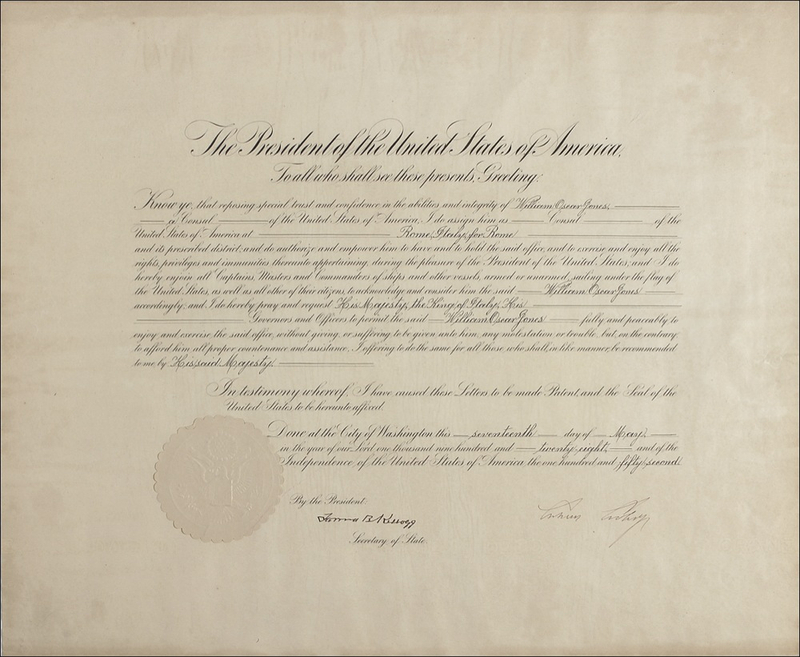 The President of the United States of America,
To all who shall see these presents, Greeting:
Know ye, that reposing special trust and confidence in the abilities and integrity of William Oscar Jones,
a Consul of the United States of America, I do assign him as Consul of the
United States of America at Rome, Italy, for Rome
and its prescribed district; and do authorize and empower him to have and to hold the said office, and to exercise and enjoy all the
rights, privileges and immunities thereunto appertaining, during the pleasure of the President of the United States; and I do
hereby enjoin all Captains, Masters and Commanders of ships and other vessels, armed or unarmed, sailing under the flag of
the United States, as well as all other of their citizens, to acknowledge and consider him the said William Oscar Jones
accordingly; and I do hereby pray and request His Majesty, the King of Italy, His
Governors and Officers to permit the said William Oscar Jones fully and peaceably to
enjoy and exercise the said office, without giving, or suffering to be given unto him, any molestation or trouble, but, on the contrary,
to afford him all proper countenance and assistance; I offering to do the same for all those who shall, in like manner, be recommended
to me by His said Majesty.
In testimony whereof, I have caused these Letters to be made Patent, and the Seal of the
United States to be hereunto affixed.
Done at the City of Washington this seventeenth day of May,
in the year of our Lord one thousand nine hundred and twenty-eight, and of the
Independence of the United States of America the one hundred and fifty-second.
By the President:
Frank B. Kellogg
Secretary of State.
Calvin Coolidge